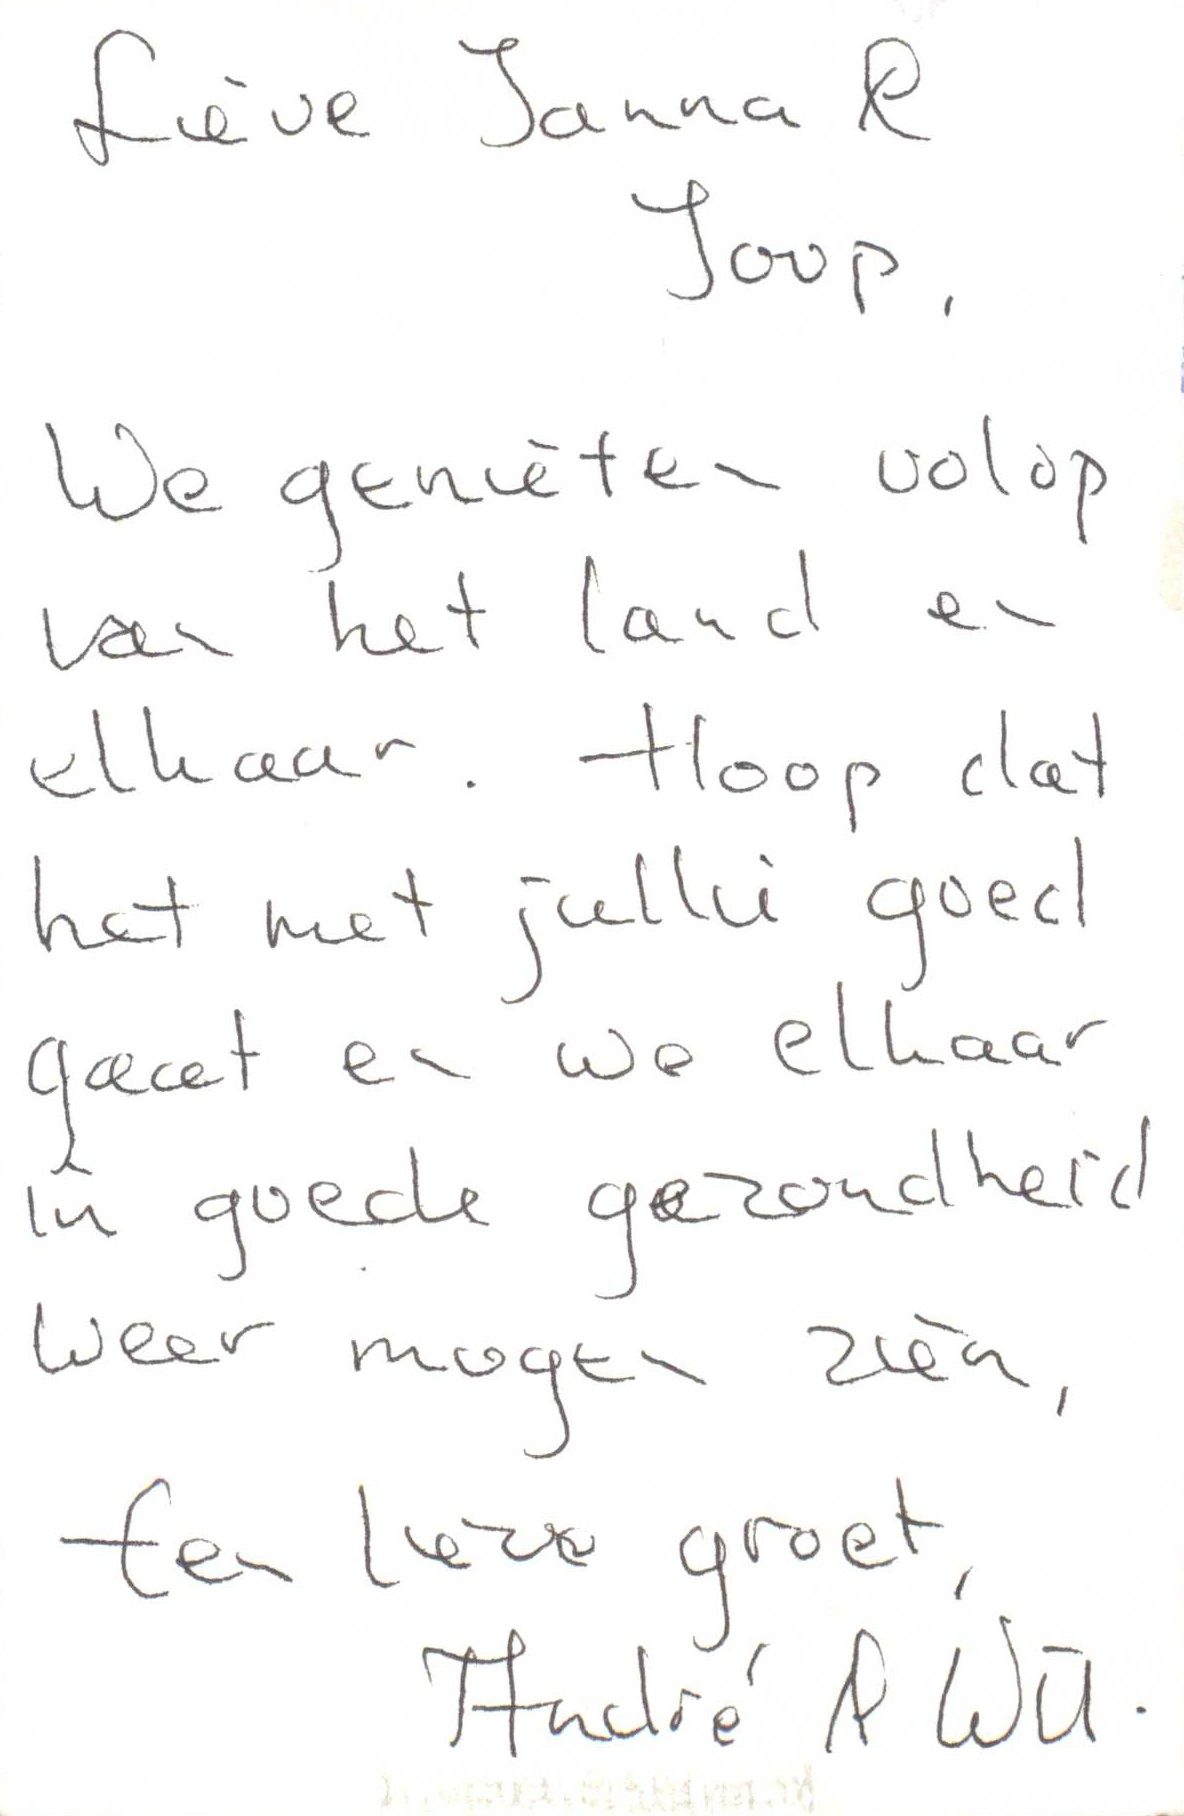 Lieve Janna &
Joop,
We genieten volop
van het land en
elkaar. Hoop dat
het met jullie goed
gaat en we elkaar
in goede gezondheid
weer mogen zien,
Een lieve groet,
André & Wil.